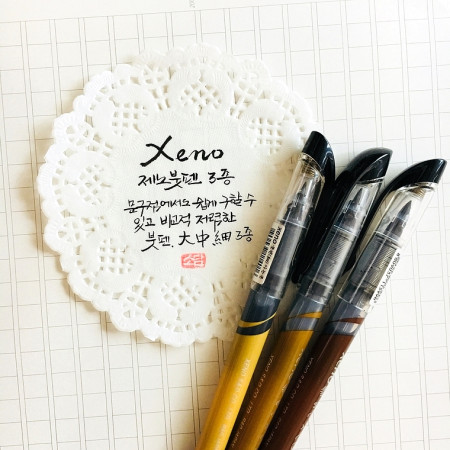 Xeno
제노붓펜 3종
문구점에서도 쉽게 구할 수
있고 비교적 저렴한
붓펜 大中細 3종